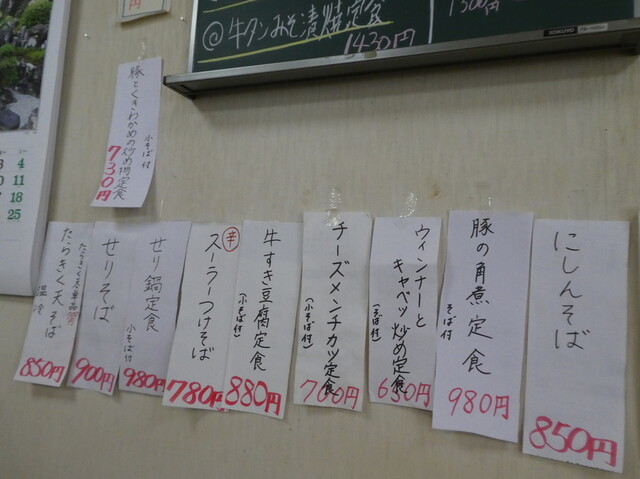 ◎牛タンみそ漬焼定食
1430円
1300円
KOKUYO
豚とくきわかめの炒め物定食
小そば付
730円
4
11
18
25
にしんそば
850円
豚の角煮定食
そば付
980円
ウィンナーと
キャベツ炒め定食
(そば付)
630円
チーズメンチカツ定食
(小そば付)
700円
牛すき豆腐定食
(小そば付)
880円
辛
スーラーつけそば
780円
せり鍋定食
小そば付
980円
せりそば
900円
たらきく天そば
温冷
850円